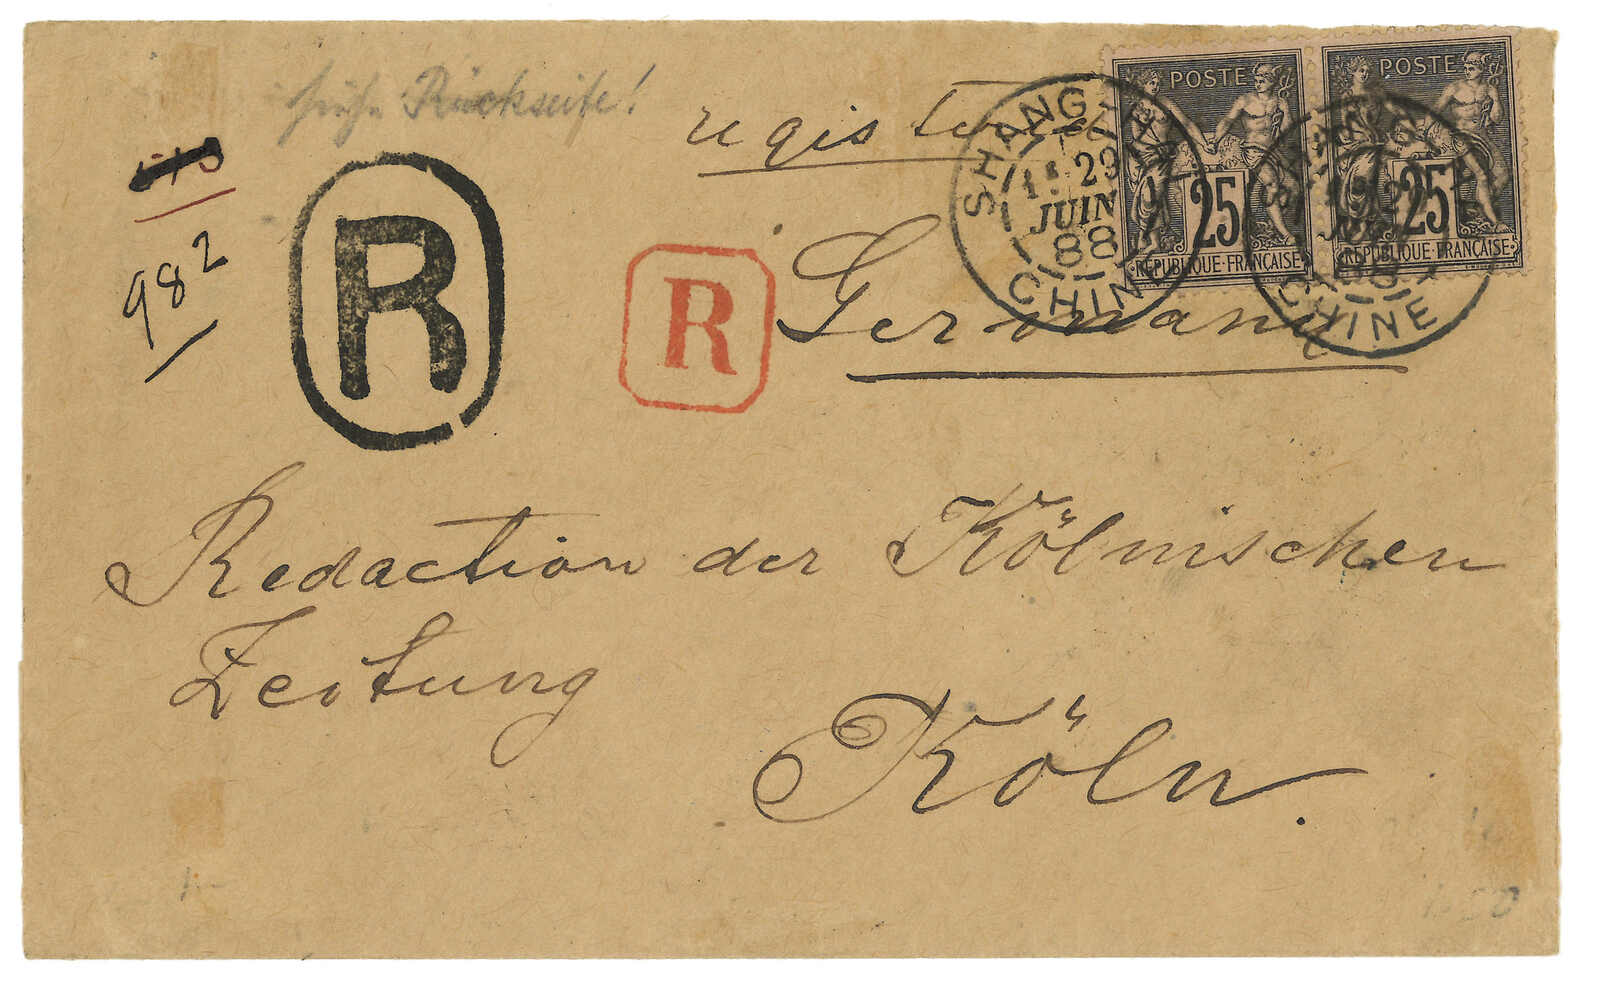 Rückseite!
registered
POSTE
25
REPUBLIQUE·FRANÇAISE
POSTE
25
REPUBLIQUE·FRANÇAISE
SHANG-HAI
29
JUIN
88
CHINE
CHINE
982
R
R
Germany
Redaction der Kölnischen
Zeitung
Köln.